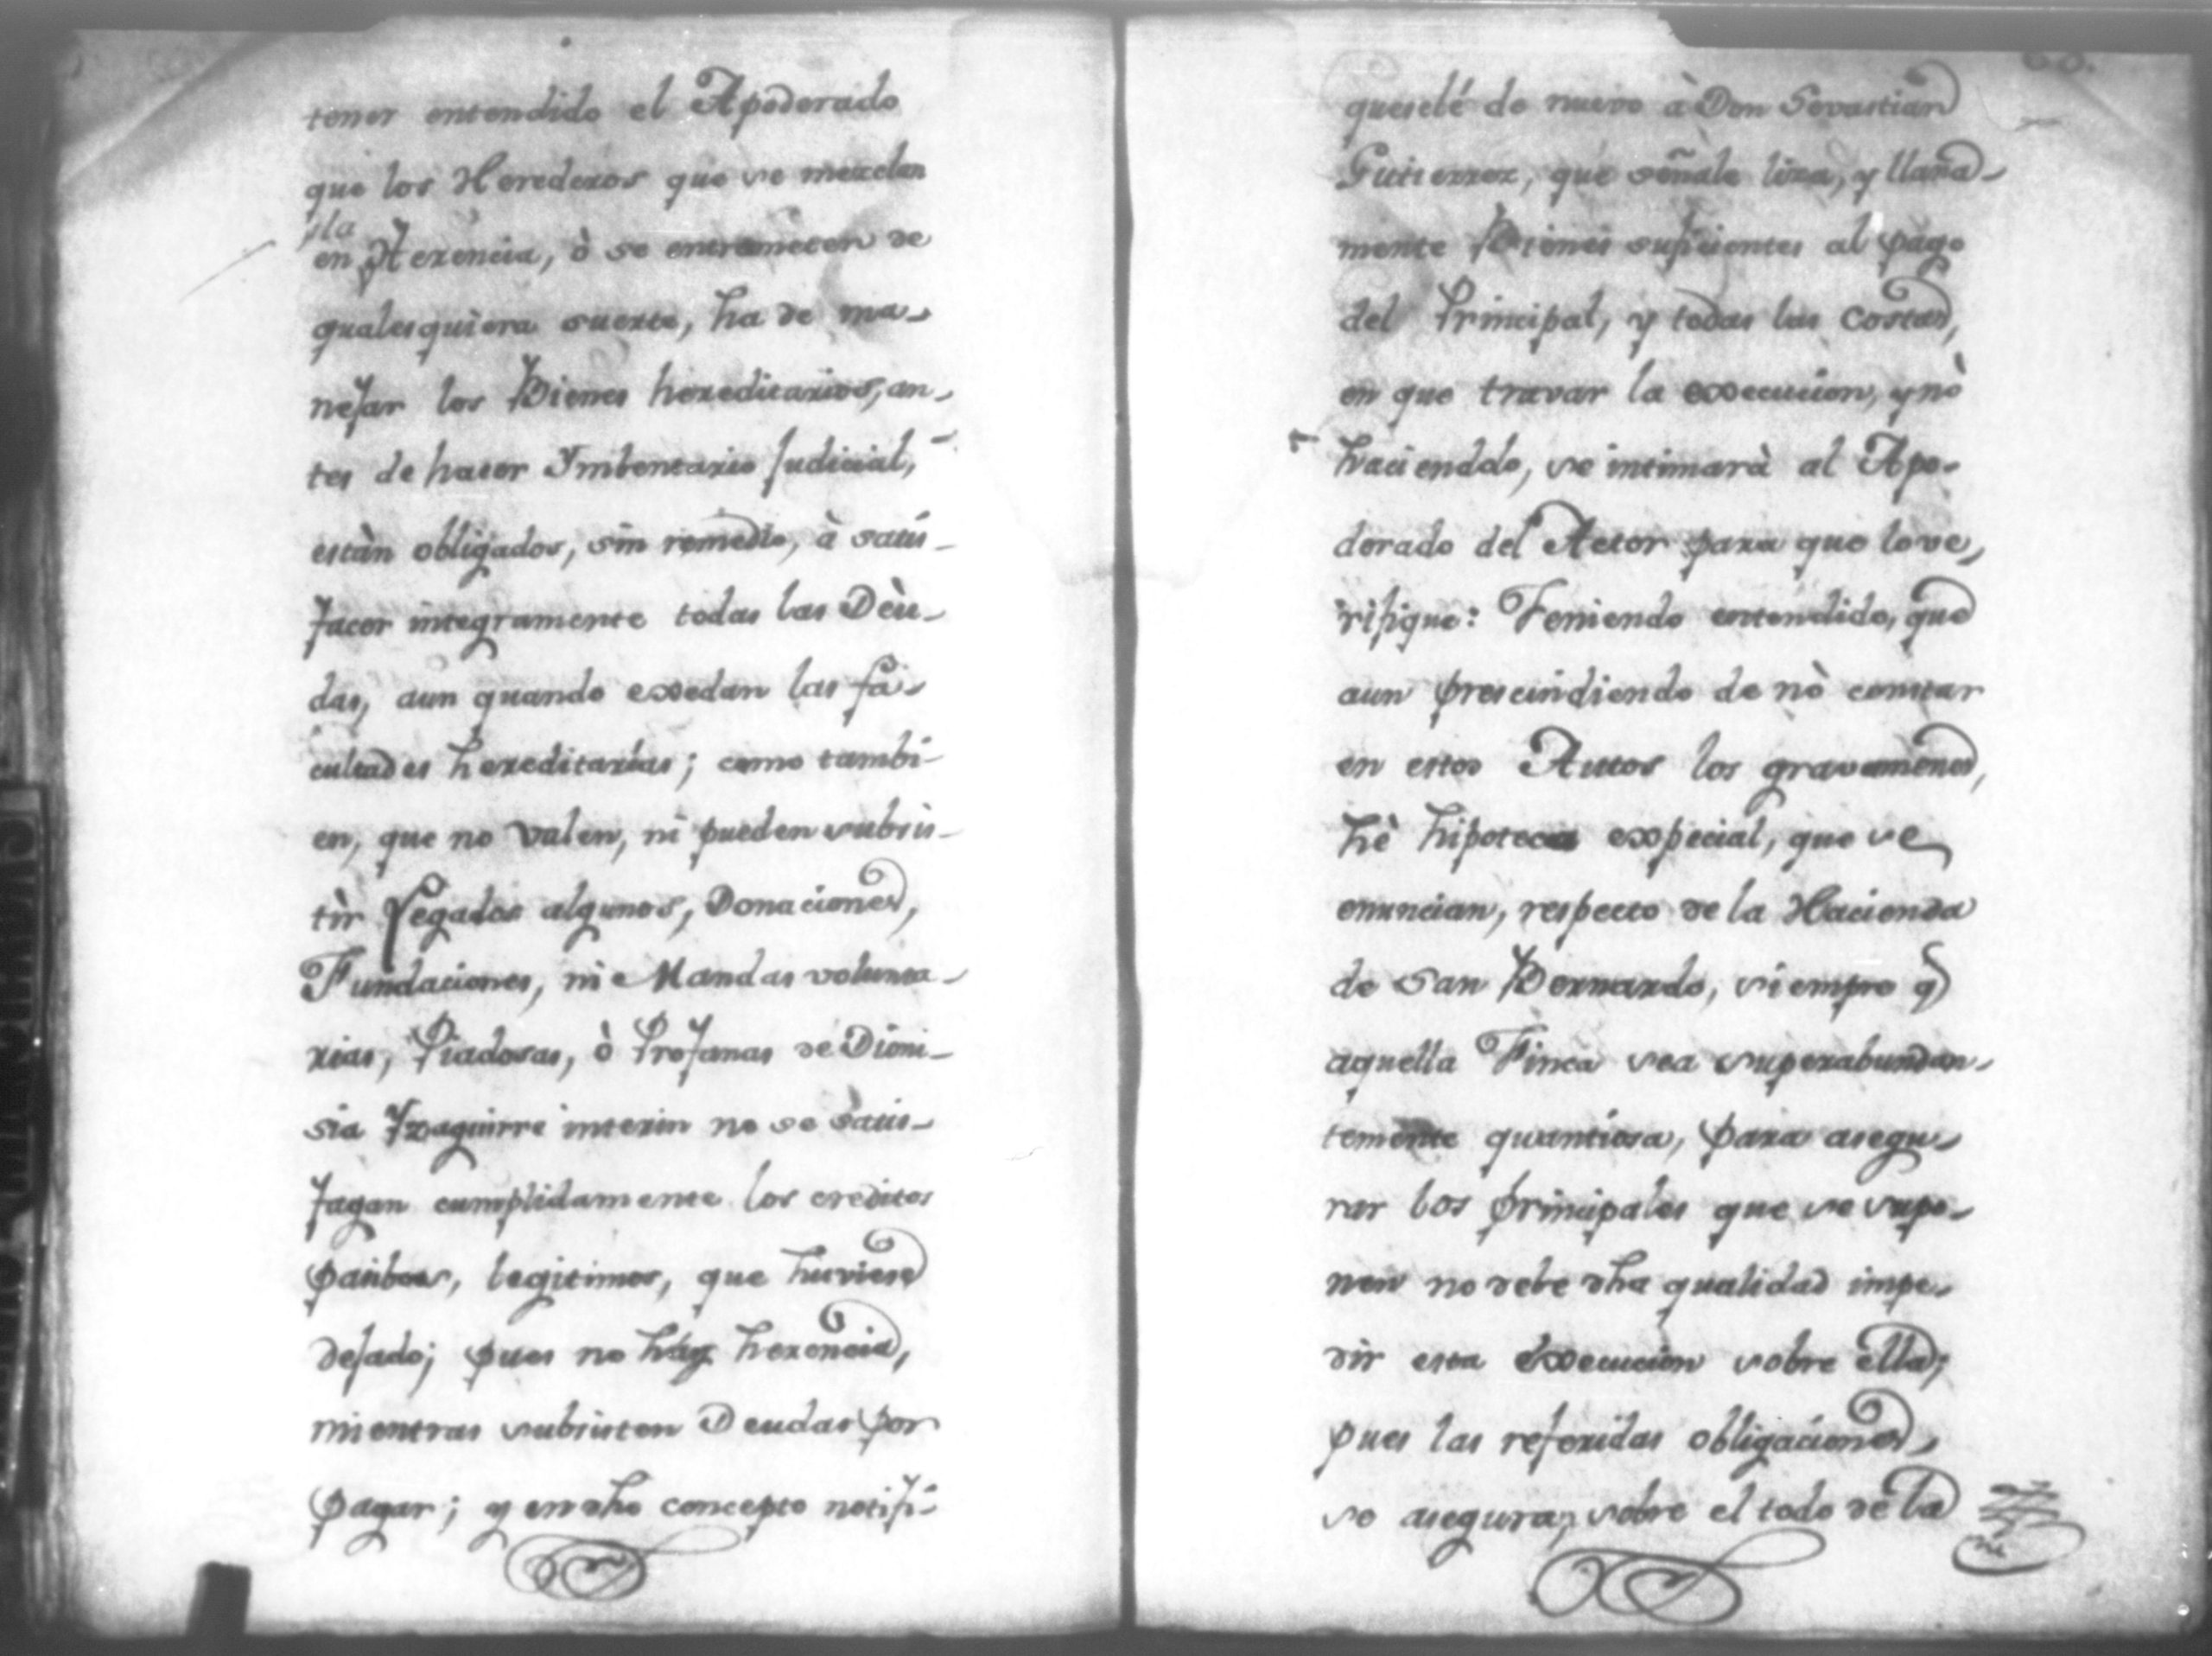 tener entendido el Apoderado
que los Herederos que se mezclan
la
en Herencia, ò se entrometen de
qualesquiera suerte, ha de ma-
nejar los Bienes hereditarios, an-
tes de hacer Ymbentario Judicial,
estàn obligados, sin remedio, à satis-
facer integramente todas las Dèu-
das, aun quando exsedan las fa-
cultades hereditarias; como tambi-
en, que no valen, ni pueden subsis-
tìr Legados algunos, Donaciones,
Fundaciones, ni Mandas volunta-
rias, Piadosas, ò Profanas de Dioni-
sia Yzaguirre interin no se satis-
fagan cumplidamente los creditos
pasibos, legitimos, que huviese
dejado; pues no hay herencia,
mientras subsisten Deudas por
pagar; y en dho concepto notifi-
quesele de nuevo à Don Sevastian
Gutierrez, que señale lisa, y llana-
mente Bienes suficientes al pago
del Principal, y todas las Costas,
en que travar la execucion, y nò
haciendolo, se intimarà al Apo-
derado del Actor para que lo ve-
rifique: Teniendo entendido, que
aun prescindiendo de nò constar
en estos Autos los gravamenes,
hè hipoteca expecial, que se
enuncian, respecto de la Hacienda
de San Bernardo, siempre q
aquella Finca sea superabundan-
temente quantiosa, para asegu-
rar los principales que se supo-
nen no debe dha qualidad impe-
dir esta execucion sobre ella;
pues las referidas obligaciones,
se aseguran, sobre el todo de la